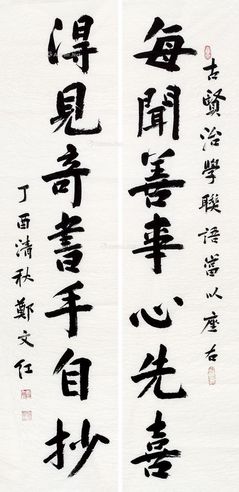 古賢治學聯語當以座右
每聞善事心先喜
得見奇書手自抄
丁酉清秋鄭文仁